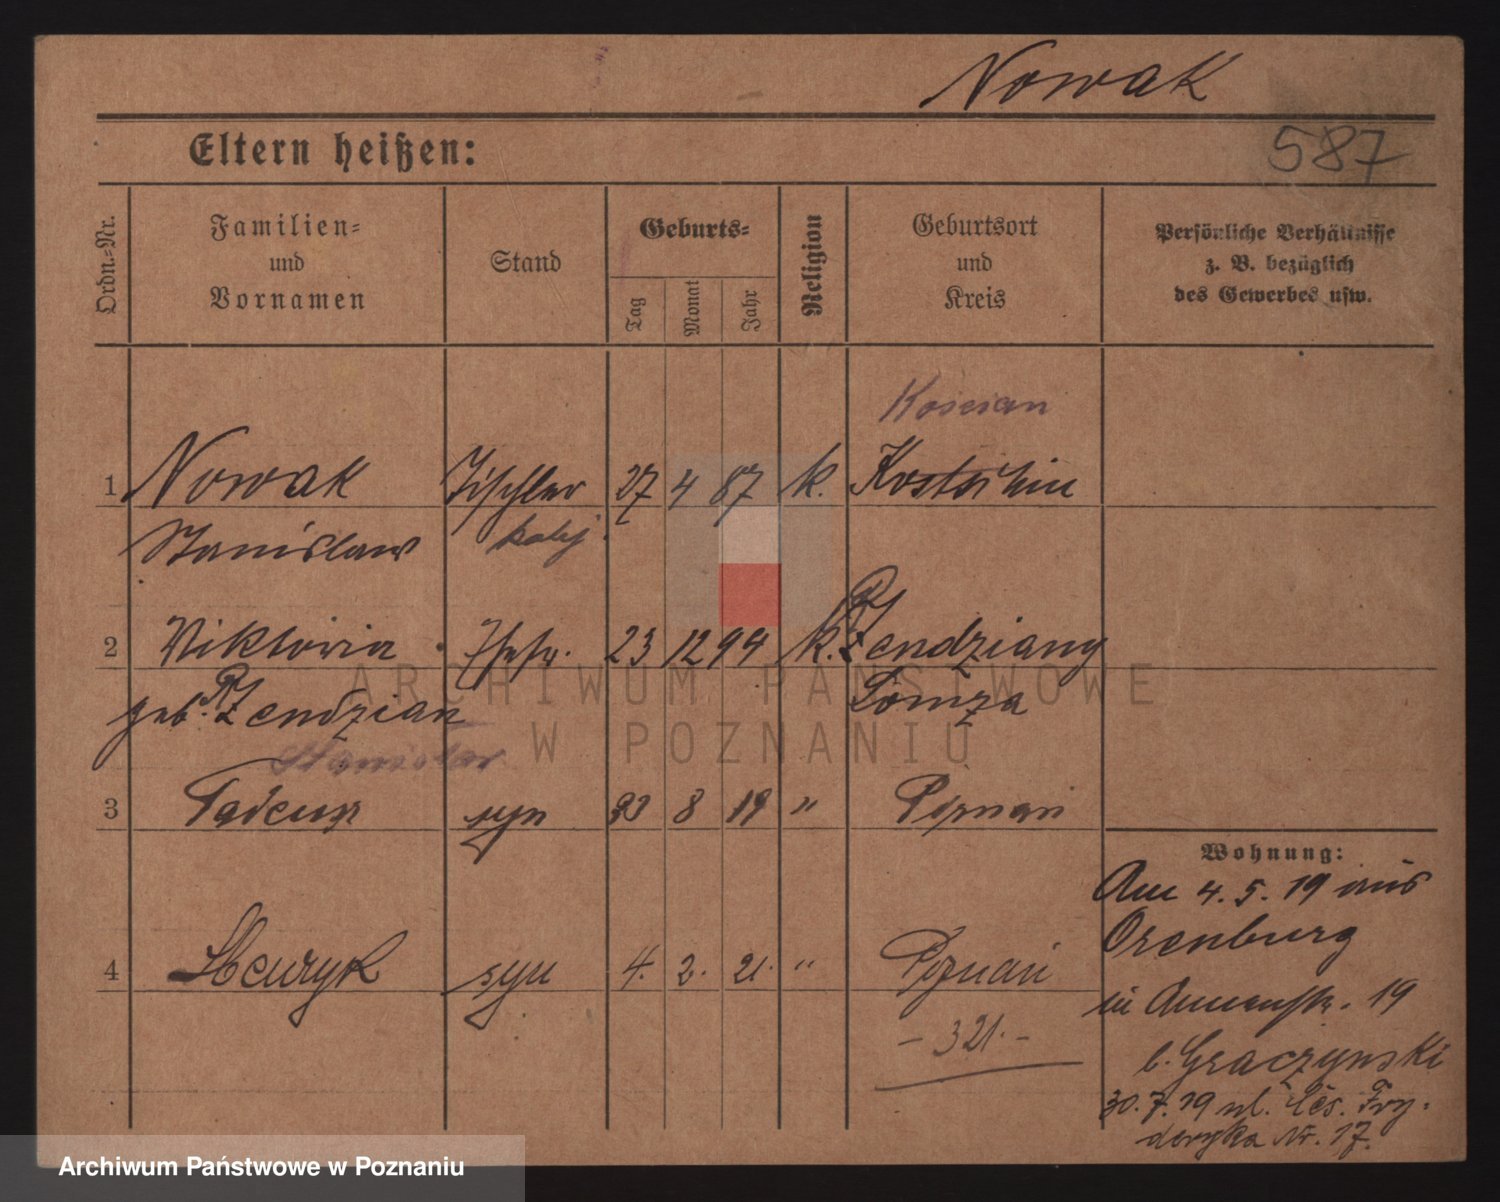 Nowak
Eltern heißen:
587
Ordn.-Nr.
Familien-
und
Vornamen
Stand
Geburts-
Tag
Monat
Jahr
Religion
Geburtsort
und
Kreis
Persönliche Verhältnisse
z. B. bezüglich
des Gewerbes usw.
Kościan
1 Nowak Tischler 27 4 87 k.
Stanislaw kolej.
2 Wiktoria Ehefr. 23 12 94 k. Rzendziany
geb. Rzendzian Lomza
Stanislaw
3 Tadeusz syn 8 19 " Poznań
Wohnung:
Am 4. 5. 19 aus
Orenburg
4 Henryk syn 4. 2. 21. " Poznań
in Annenstr. 19
- 321. -
b. Graczynski
30. 7. 19 ul. Ces. Fry-
deryka Nr. 17.
ARCHIWUM PAŃSTWOWE
W POZNANIU
Archiwum Państwowe w Poznaniu